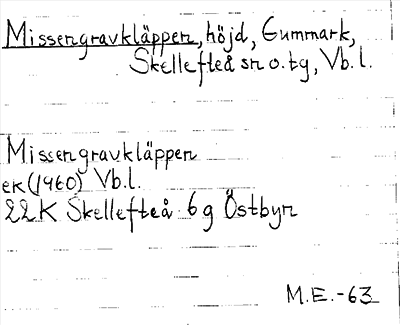 Missengravkläppen, höjd, Gummark,
Skellefteå sn o. tg, Vb. l.
Missengravkläppen
ek(1960) Vb. l.
22K Skellefteå 6 g Östbyn
M.E.-63